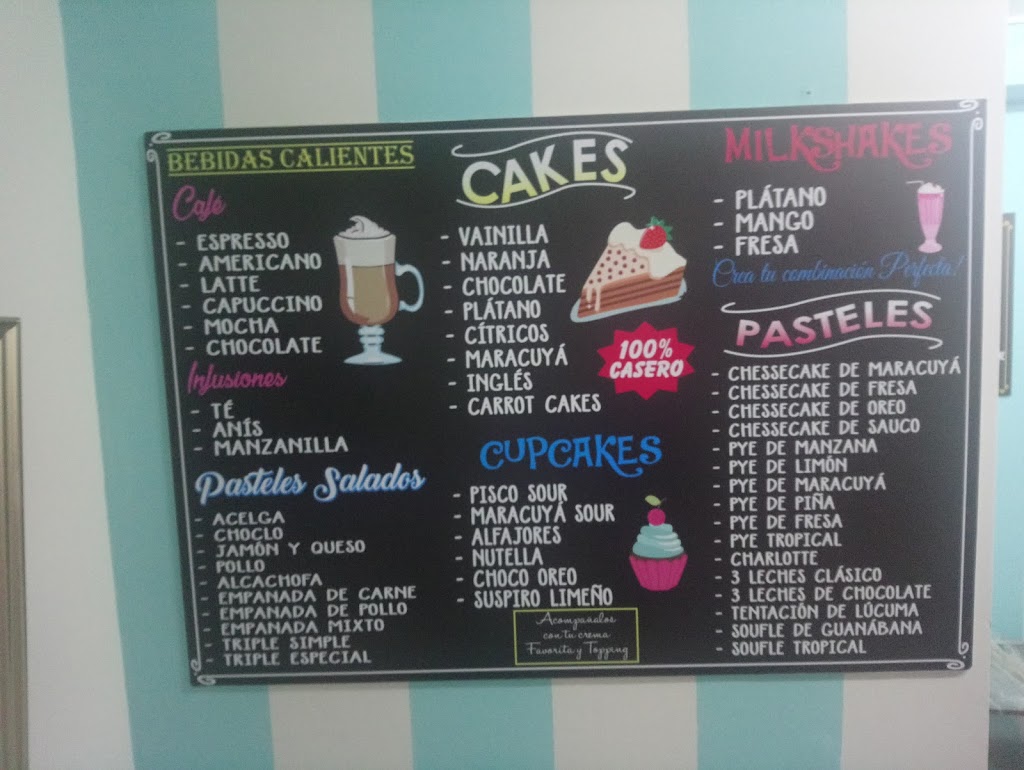 BEBIDAS CALIENTES
Café
- ESPRESSO
- AMERICANO
- LATTE
- CAPUCCINO
- MOCHA
- CHOCOLATE
Infusiones
- TÉ
- ANÍS
- MANZANILLA
Pasteles Salados
- ACELGA
- CHOCLO
- JAMÓN Y QUESO
- POLLO
- ALCACHOFA
- EMPANADA DE CARNE
- EMPANADA DE POLLO
- EMPANADA MIXTO
- TRIPLE SIMPLE
- TRIPLE ESPECIAL
CAKES
- VAINILLA
- NARANJA
- CHOCOLATE
- PLÁTANO
- CÍTRICOS
- MARACUYÁ
- INGLÉS
- CARROT CAKES
100%
CASERO
CUPCAKES
- PISCO SOUR
- MARACUYÁ SOUR
- ALFAJORES
- NUTELLA
- CHOCO OREO
- SUSPIRO LIMEÑO
Acompañalos
con tu crema
Favorita y Topping
MILKSHAKES
- PLÁTANO
- MANGO
- FRESA
Crea tu combinación Perfecta!
PASTELES
- CHESSECAKE DE MARACUYÁ
- CHESSECAKE DE FRESA
- CHESSECAKE DE OREO
- CHESSECAKE DE SAUCO
- PYE DE MANZANA
- PYE DE LIMÓN
- PYE DE MARACUYÁ
- PYE DE PIÑA
- PYE DE FRESA
- PYE TROPICAL
- CHARLOTTE
- 3 LECHES CLÁSICO
- 3 LECHES DE CHOCOLATE
- TENTACIÓN DE LÚCUMA
- SOUFLE DE GUANÁBANA
- SOUFLE TROPICAL